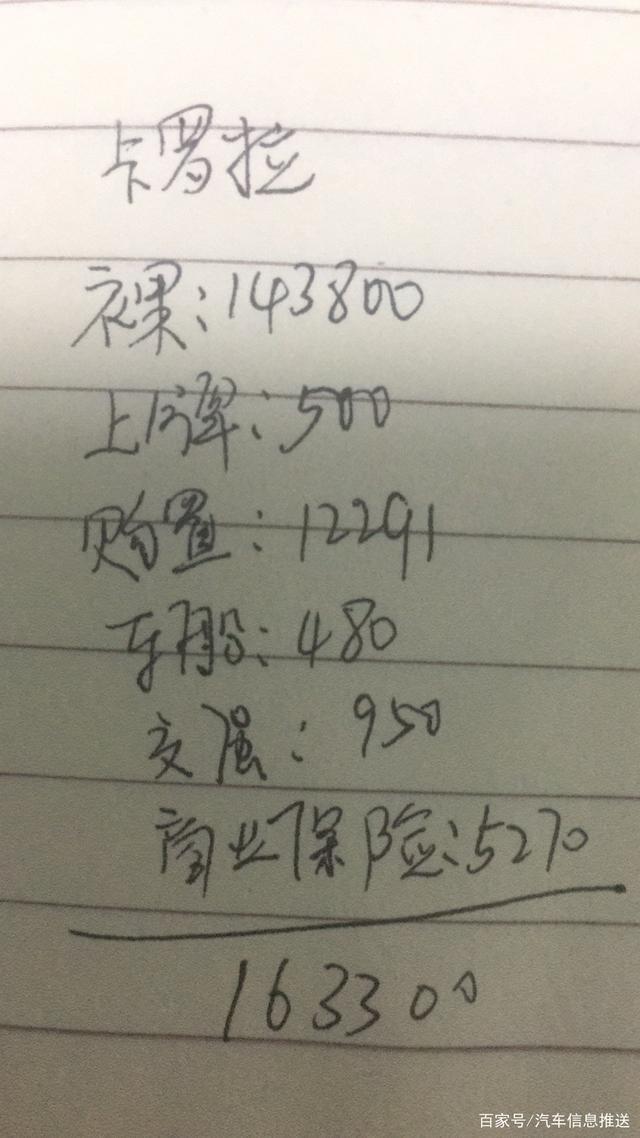 卡罗拉
裸:143800
上牌:500
购置:12291
车船:480
交强:950
商业保险:5270
163300
百家号/汽车信息推送